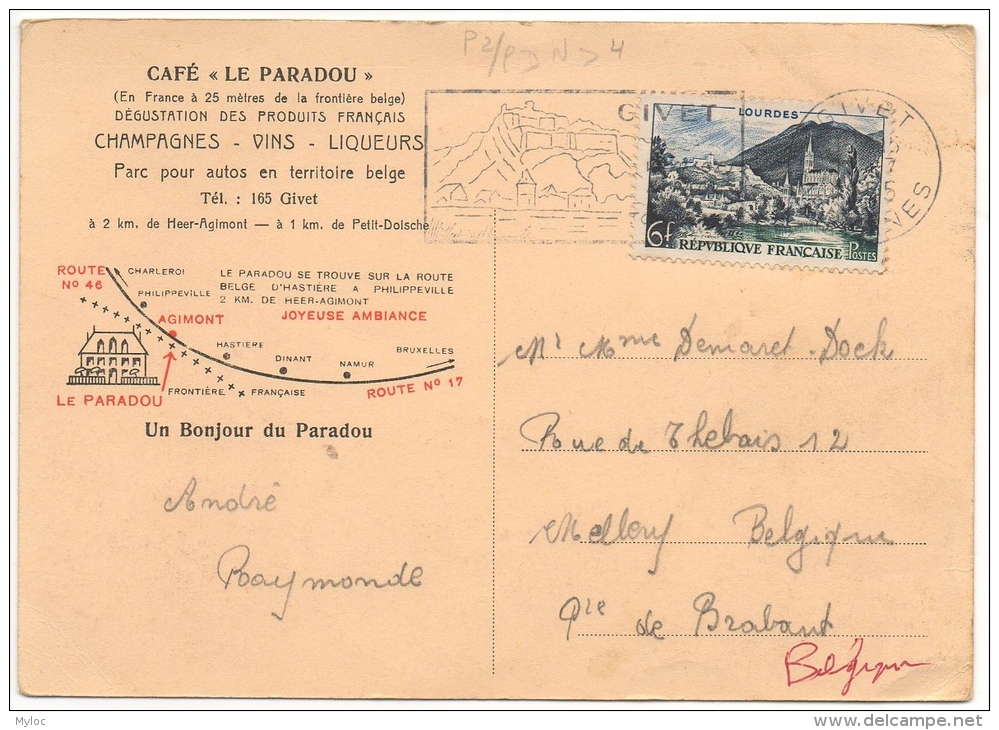 P2/
CAFÉ « LE PARADOU »
(En France à 25 mètres de la frontière belge)
DÉGUSTATION DES PRODUITS FRANÇAIS
CHAMPAGNES - VINS - LIQUEURS
Parc pour autos en territoire belge
Tél. : 165 Givet
à 2 km. de Heer-Agimont — à 1 km. de Petit-Doische
GIVET
LOURDES
6f
RÉPUBLIQUE FRANÇAISE
POSTES
GIVET
ROUTE
Nº 46
CHARLEROI
PHILIPPEVILLE
LE PARADOU SE TROUVE SUR LA ROUTE
BELGE D'HASTIÈRE A PHILIPPEVILLE
2 KM. DE HEER-AGIMONT
JOYEUSE AMBIANCE
AGIMONT
HASTIERE
DINANT
NAMUR
BRUXELLES
LE PARADOU
FRONTIÈRE
FRANÇAISE
ROUTE Nº 17
Un Bonjour du Paradou
André
Raymonde
Mr Mme Demaret-Dock
Rue de Thebais 12
Mellery Belgique
Pce de Brabant
Belgique
Myloc
delcampe.net